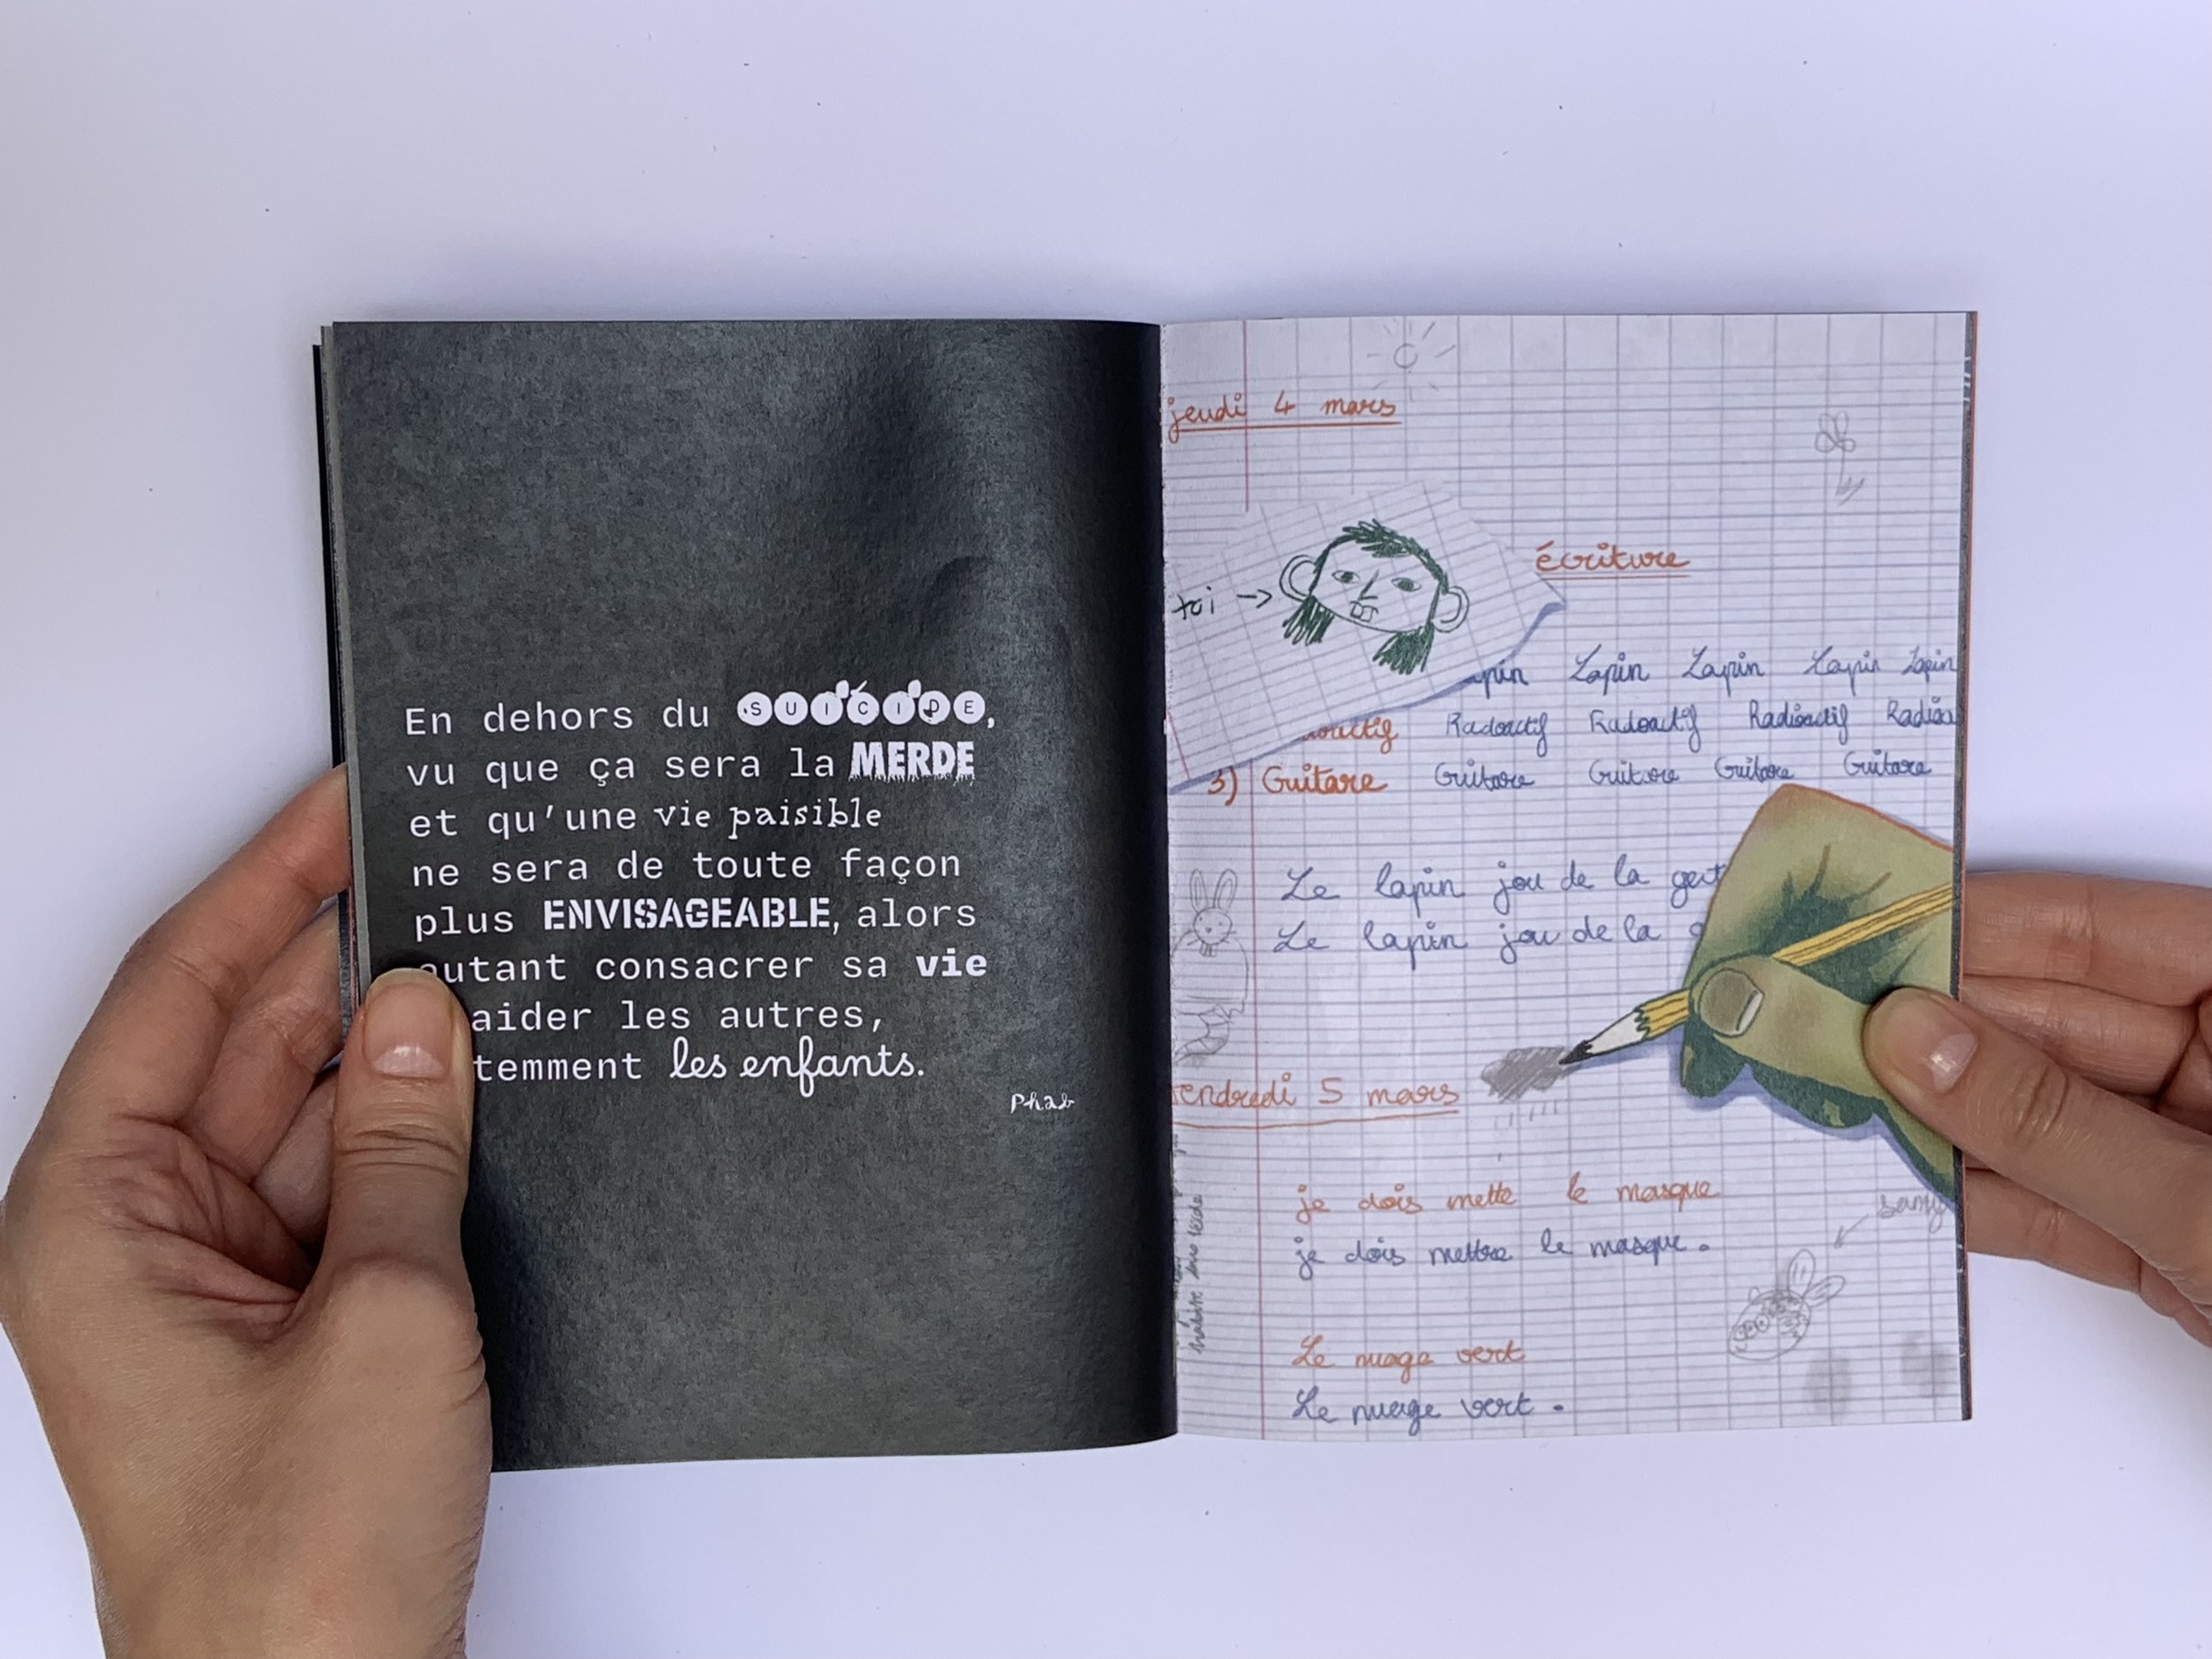 En dehors du SUICIDE,
vu que ça sera la MERDE
et qu'une vie paisible
ne sera de toute façon
plus ENVISAGEABLE, alors
autant consacrer sa vie
aider les autres,
temment les enfants.
Phab
jeudi 4 mars
écriture
toi →
pin Lapin Lapin Lapin Lapin
oactif Radoactif Radoactif Radioactif Radioa
3) Guitare Guitare Guitare Guitare Guitare
Le lapin jou de la guit
Le lapin jou de la g
endredi 5 mars
je dois mette le masque
je dois mettre le masque.
samy
Le nuage vert
Le nuage vert.